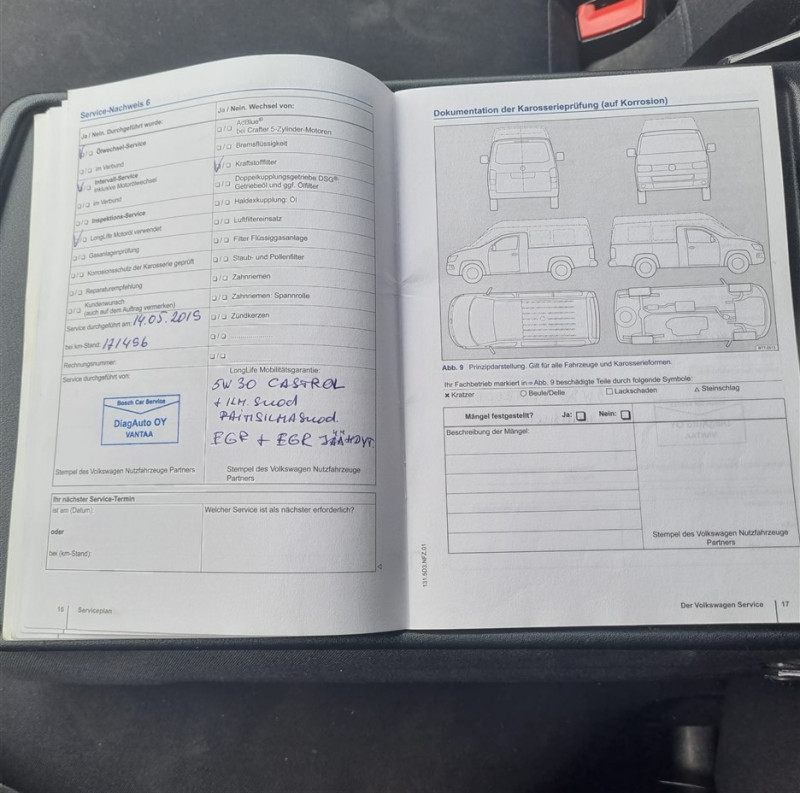 Service-Nachweis 6
Ja / Nein. Durchgeführt wurde:
Ölwechsel-Service
Im Verbund
Intervall-Service
inklusive Motorölwechsel
Im Verbund
Inspektions-Service
LongLife Motoröl verwendet
Gasanlagenprüfung
Korrosionsschutz der Karosserie geprüft
Reparaturempfehlung
Kundenwunsch
(auch auf dem Auftrag vermerken)
Service durchgeführt am: 14.05.2019
bei km-Stand: 171496
Rechnungsnummer:
Service durchgeführt von:
Bosch Car Service
DiagAuto OY
VANTAA
Stempel des Volkswagen Nutzfahrzeuge Partners
Ja / Nein. Wechsel von:
AdBlue®
bei Crafter 5-Zylinder-Motoren
Bremsflüssigkeit
Kraftstofffilter
Doppelkupplungsgetriebe DSG®:
Getriebeöl und ggf. Ölfilter
Haldexkupplung: Öl
Luftfiltereinsatz
Filter Flüssiggasanlage
Staub- und Pollenfilter
Zahnriemen
Zahnriemen: Spannrolle
Zündkerzen
LongLife Mobilitätsgarantie:
5W30 CASTROL
+ ILM. suod
RAITISILMAsuod.
EGR + EGR JÄÄHDYT.
Stempel des Volkswagen Nutzfahrzeuge
Partners
Ihr nächster Service-Termin
ist am (Datum):
oder
bei (km-Stand):
Welcher Service ist als nächster erforderlich?
16 Serviceplan
Dokumentation der Karosserieprüfung (auf Korrosion)
Abb. 9 Prinzipdarstellung. Gilt für alle Fahrzeuge und Karosserieformen.
Ihr Fachbetrieb markiert in ⇒ Abb. 9 beschädigte Teile durch folgende Symbole:
× Kratzer ○ Beule/Delle □ Lackschaden △ Steinschlag
Mängel festgestellt? Ja: □ Nein: □
Beschreibung der Mängel:
Stempel des Volkswagen Nutzfahrzeuge
Partners
131.5D3.NFZ.01
Der Volkswagen Service 17